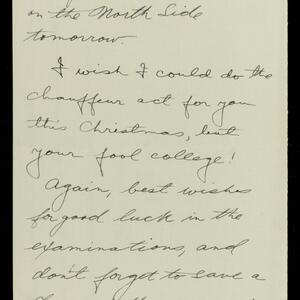 on the North Side
tomorrow.
I wish I could do the
chauffeur act for you
this Christmas, but
your fool college!
Again, best wishes
for good luck in the
examinations, and
don't forget to save a